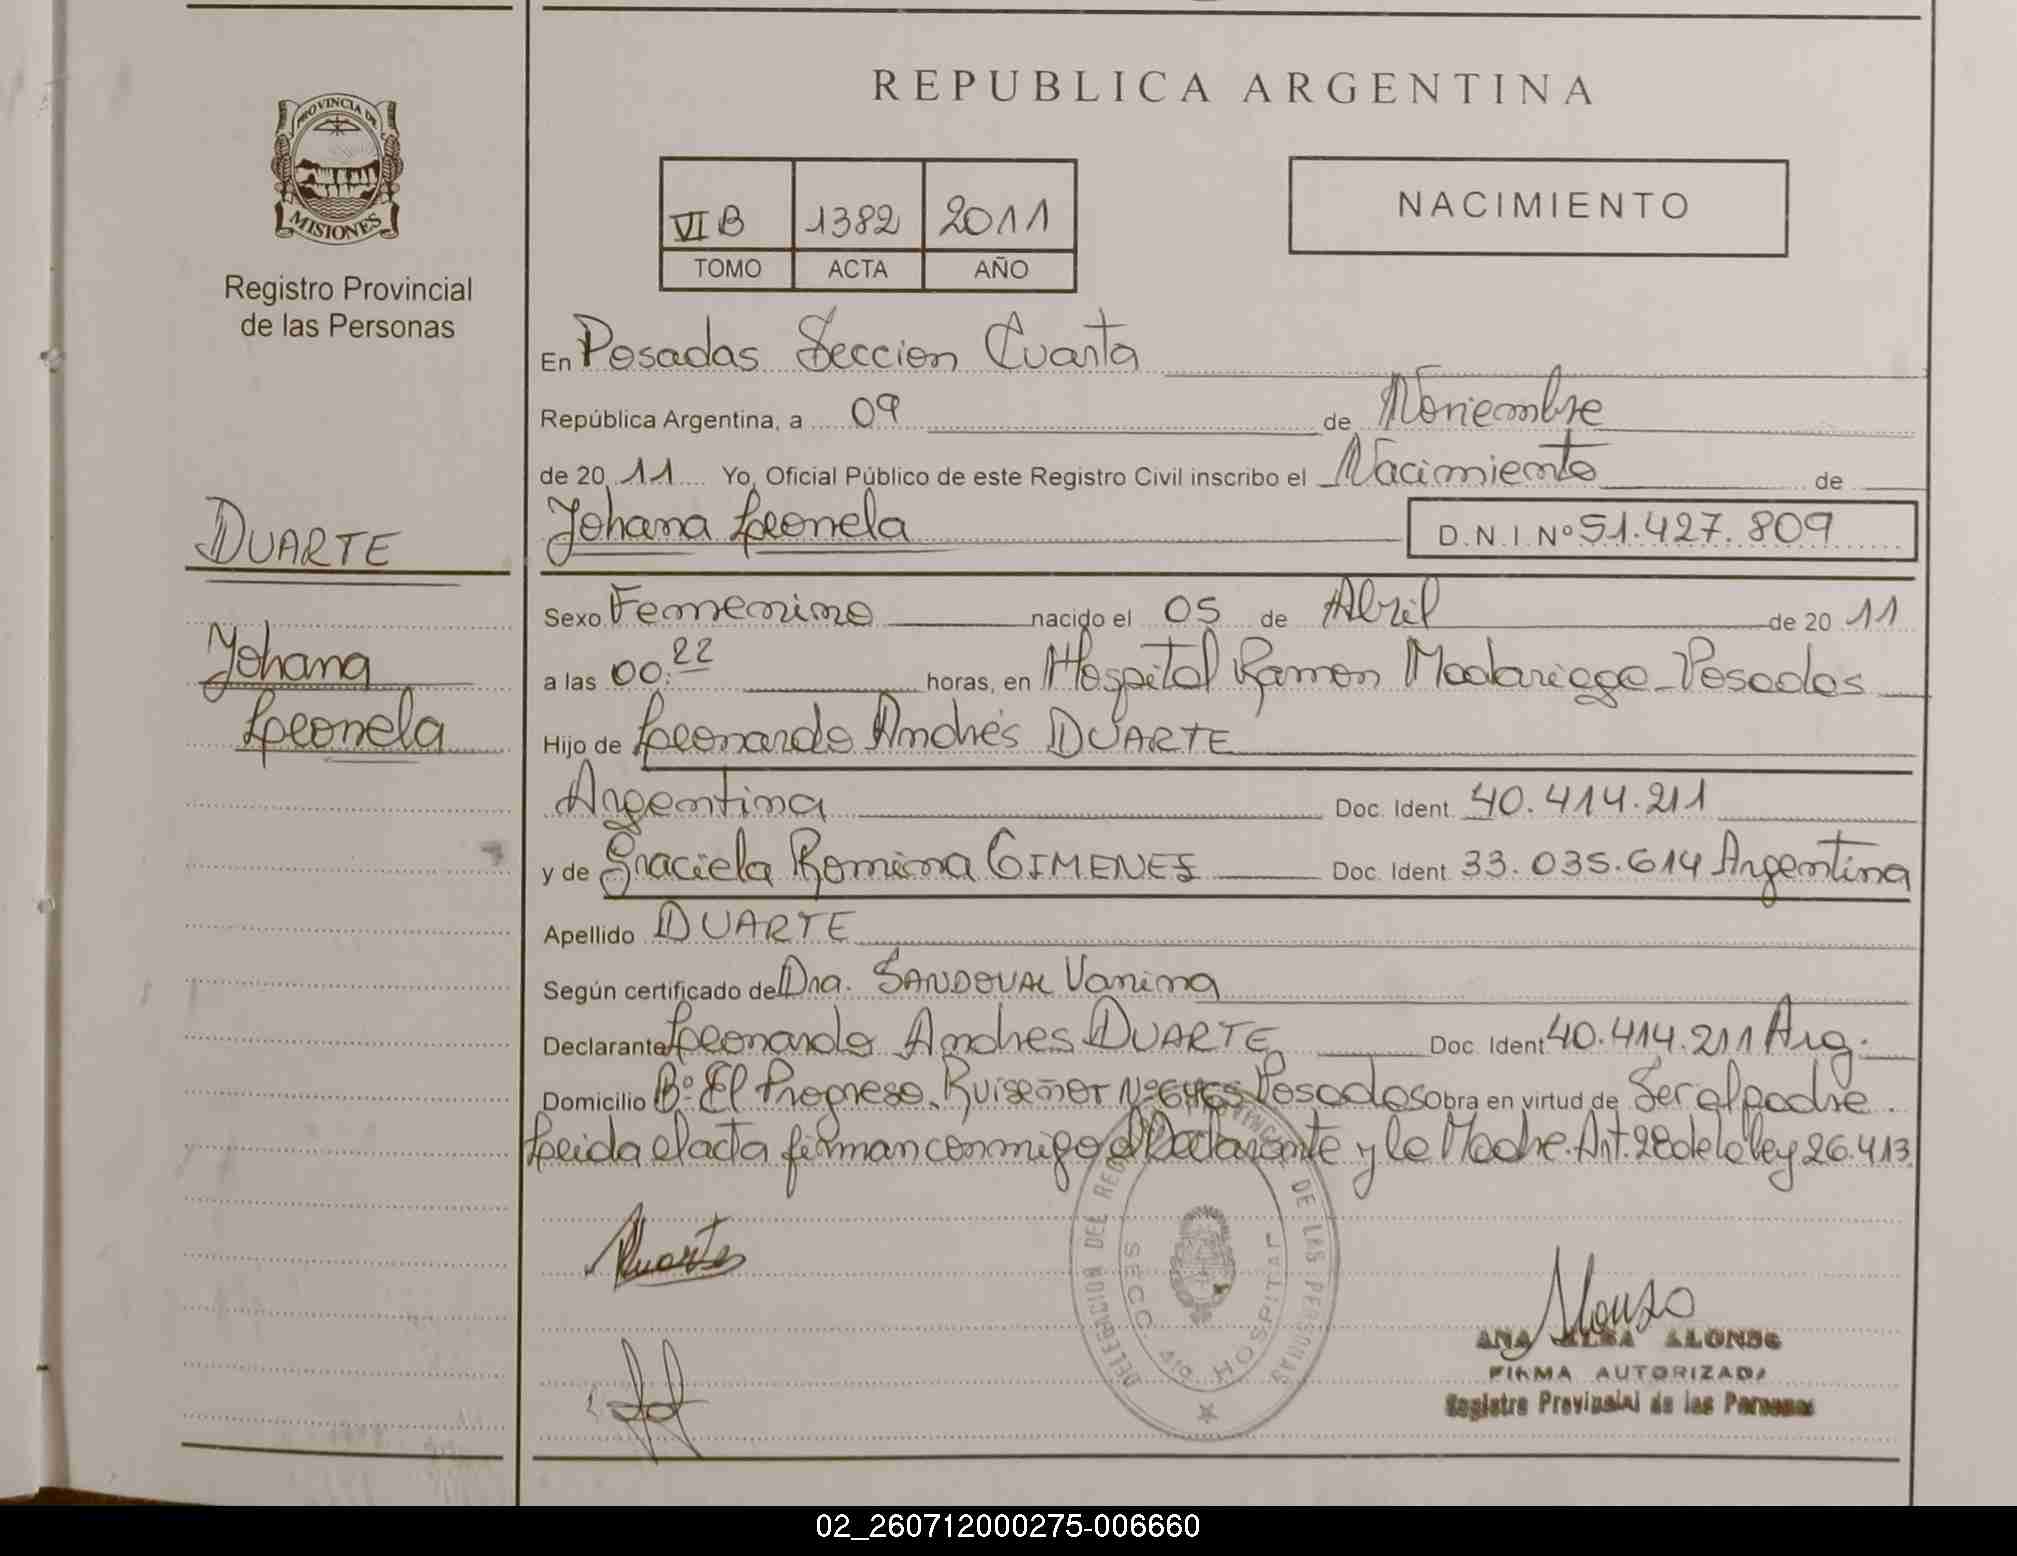 REPUBLICA ARGENTINA
PROVINCIA DE
MISIONES
Registro Provincial
de las Personas
VI B 1382 2011
TOMO ACTA AÑO
NACIMIENTO
En Posadas Seccion Cuarta
República Argentina, a 09 de Noviembre
de 20 11 Yo, Oficial Público de este Registro Civil inscribo el Nacimiento de
Yohana Leonela D.N.I. Nº 51.427.809
DUARTE
Yohana
Leonela
Sexo Femenino nacido el 05 de Abril de 20 11
a las 00:22 horas, en Hospital Ramon Madariaga - Posadas
Hijo de Leonardo Andrés DUARTE
Argentina Doc. Ident. 40.414.211
y de Graciela Romina GIMENEZ Doc. Ident. 33.035.614 Argentina
Apellido DUARTE
Según certificado de Dra. SANDOVAL Vanina
Declarante Leonardo Andres DUARTE Doc. Ident. 40.414.211 Arg.
Domicilio Bº El Progreso. Ruiseñor Nº 6465 Posadas obra en virtud de Ser el padre.
Leida el acta firman conmigo el Declarante y la Madre. Art. 28 de la ley 26.413.
Duarte
DELEGACION DEL REGISTRO PROVINCIAL DE LAS PERSONAS
SECC. 4ta HOSPITAL
Alonso
ANA ALONSO
FIRMA AUTORIZADA
Registro Provincial de las Personas
02_260712000275-006660